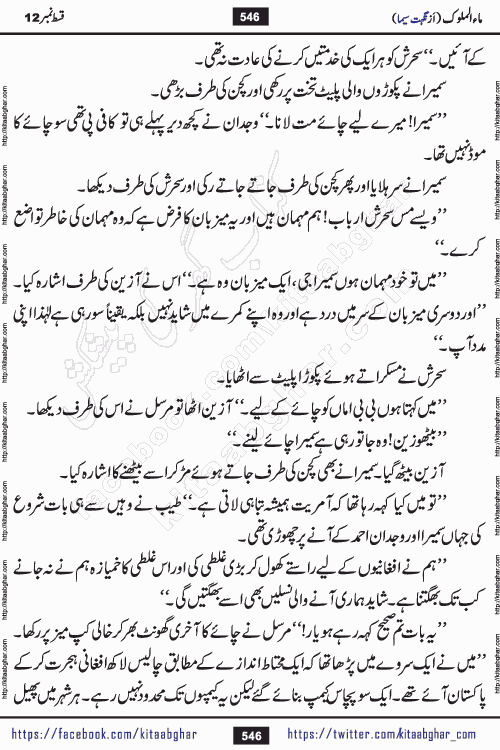 ماء الملوک (از نگہت سیما) 546 قسط نمبر 12
کے آئیں۔‘‘ سحرش کو ہر ایک کی خدمتیں کرنے کی عادت نہ تھی۔
سمیرا نے پکوڑوں والی پلیٹ تخت پر رکھی اور کچن کی طرف بڑھی۔
’’سمیرا! میرے لیے چائے مت لانا۔‘‘ وجدان نے کچھ دیر پہلے ہی تو کافی پی تھی سو چائے کا
موڈ نہیں تھا۔
سمیرا نے سر ہلایا اور پھر کچن کی طرف جاتے جاتے رکی اور سحرش کی طرف دیکھا۔
’’ویسے مس سحرش ارباب! ہم مہمان ہیں اور یہ میزبان کا فرض ہے کہ وہ مہمان کی خاطر تواضع
کرے۔‘‘
’’میں تو خود مہمان ہوں سمیرا جی، ایک میزبان وہ ہے۔‘‘ اس نے آزین کی طرف اشارہ کیا۔
’’اور دوسری میزبان کے سر میں درد ہے اور وہ اپنے کمرے میں شاید نہیں بلکہ یقیناً سو رہی ہے لہٰذا اپنی
مدد آپ۔‘‘
سحرش نے مسکراتے ہوئے پکوڑا پلیٹ سے اٹھایا۔
’’میں کہتا ہوں بی بی اماں کو چائے کے لیے۔‘‘ آزین اٹھا تو مرسل نے اس کی طرف دیکھا۔
’’بیٹھو زین! وہ جا تو رہی ہے سمیرا چائے لینے۔‘‘
آزین بیٹھ گیا۔ سمیرا نے بھی کچن کی طرف جاتے ہوئے مڑ کر اسے بیٹھنے کا اشارہ کیا۔
’’تو میں کیا کہہ رہا تھا کہ آمریت ہمیشہ تباہی لاتی ہے۔‘‘ طیب نے وہیں سے ہی بات شروع
کی جہاں سمیرا اور وجدان احمد کے آنے پر چھوڑی تھی۔
’’ہم نے افغانیوں کے لیے راستے کھول کر بڑی غلطی کی اور اس غلطی کا خمیازہ ہم نے نہ جانے
کب تک بھگتنا ہے۔ شاید ہماری آنے والی نسلیں بھی اسے بھگتیں گی۔‘‘
’’یہ بات تم صحیح کہہ رہے ہو یار!‘‘ مرسل نے چائے کا آخری گھونٹ بھر کر خالی کپ میز پر رکھا۔
’’میں نے ایک سروے میں پڑھا تھا کہ ایک محتاط اندازے کے مطابق چالیس لاکھ افغانی ہجرت کر کے
پاکستان آئے تھے۔ ایک سو پچاس کیمپ بنائے گئے لیکن یہ کیمپوں تک محدود نہیں رہے۔ ہر شہر میں پھیل
https://facebook.com/kitaabghar 546 https://twitter.com/kitaabghar_com
http://kitaabghar.com
facebook.com/kitaabghar
kitaabghar.com